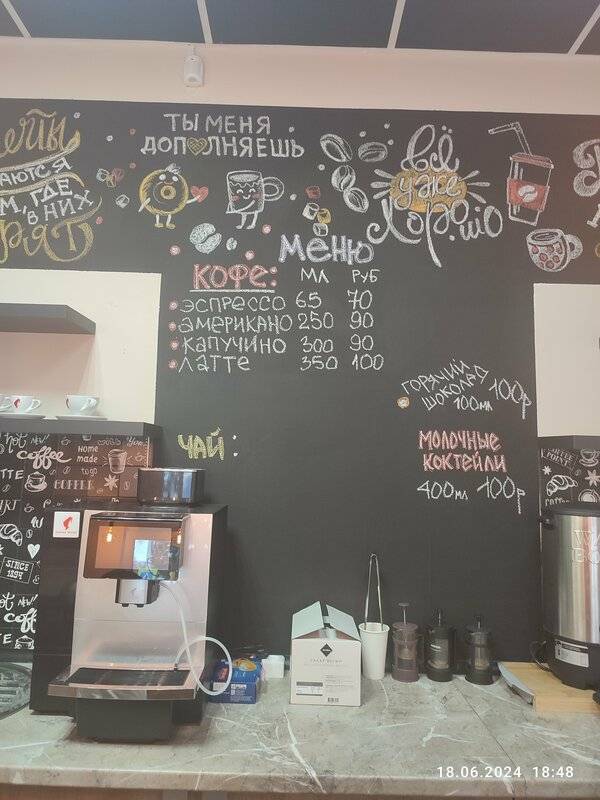 ТЫ МЕНЯ
ДОПОЛНЯЕШЬ
АЮТСЯ
М, ГДЕ
В НИХ
РЯТ
ВСЁ
УЖЕ
ХОРОШО
МЕНЮ
КОФЕ: МЛ РУБ
ЭСПРЕССО 65 70
АМЕРИКАНО 250 90
КАПУЧИНО 300 90
ЛАТТЕ 350 100
ГОРЯЧИЙ
ШОКОЛАД 100р
100мл
ЧАЙ:
МОЛОЧНЫЕ
КОКТЕЙЛИ
400мл 100р
hot NEW!
coffee
HOME
MADE
to go
SINCE
1894
18.06.2024 18:48